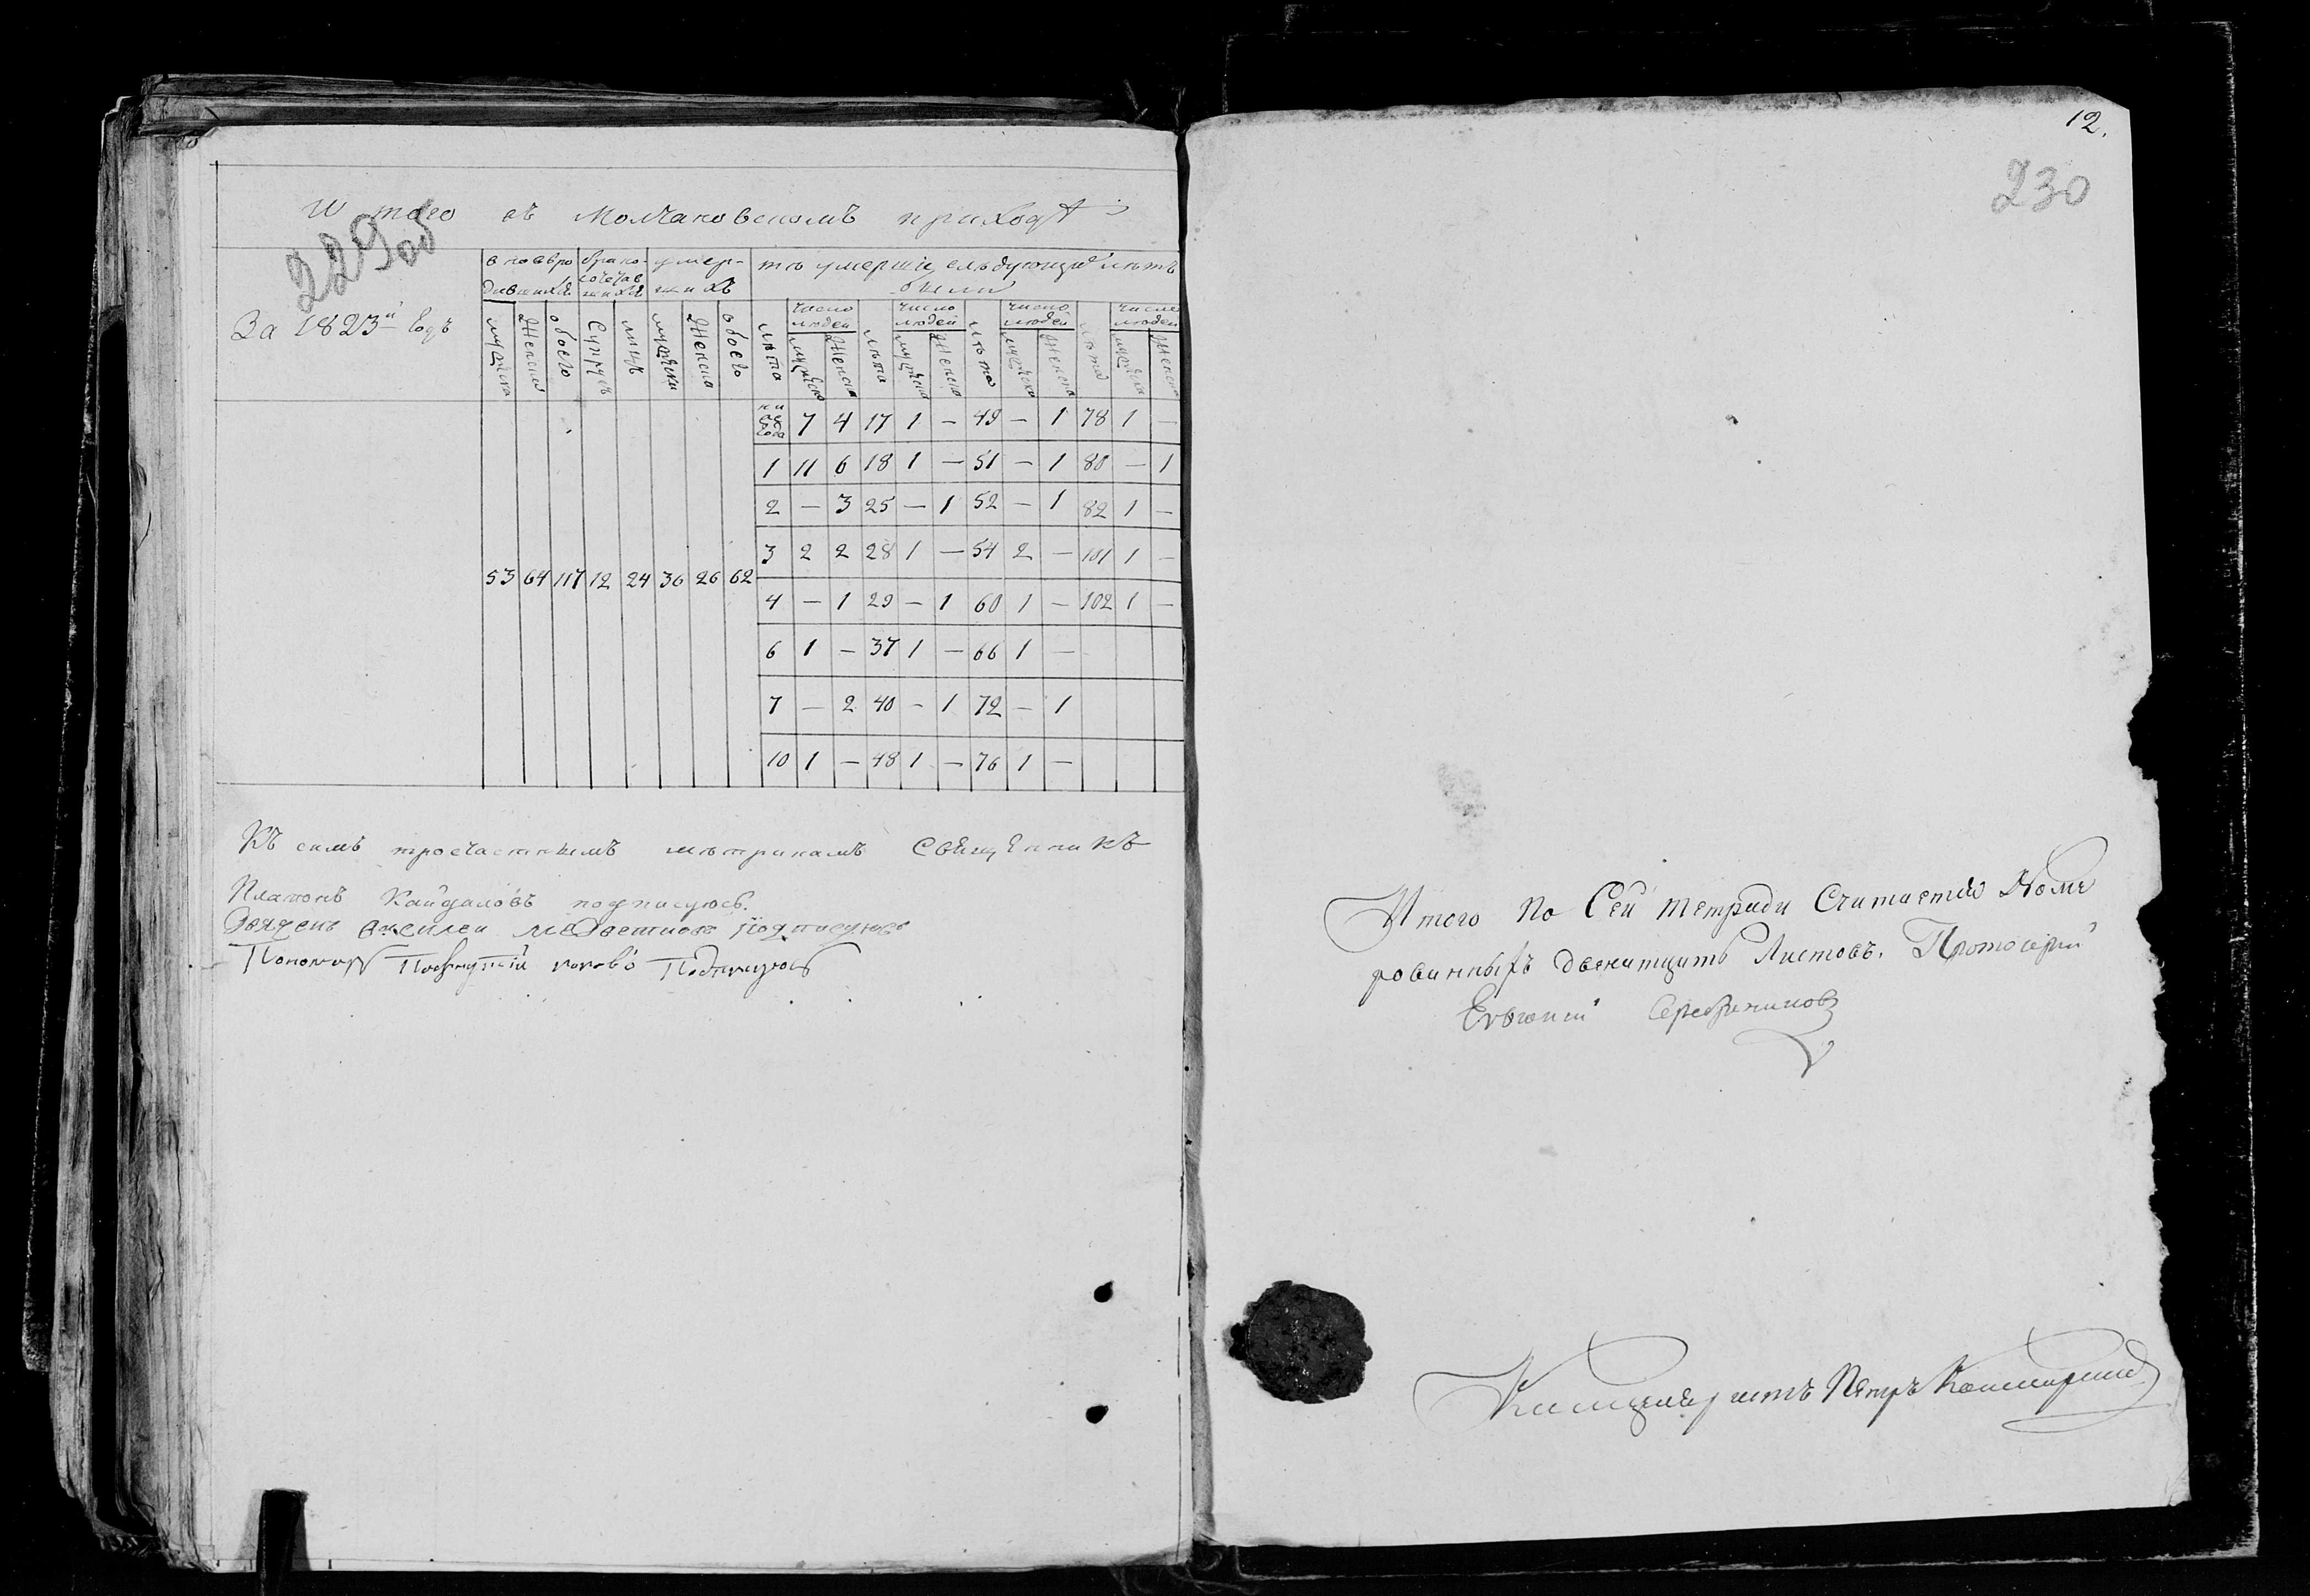 И того въ Молчановскомъ приходѣ
229об
За 1823й Годъ
в новоро дившихся
брако- сочетав шихся
умер- шихъ
тѣ умершіе слѣдующихъ лѣтъ
были
число людей
число людей
число людей
число людей
мужеска Женска обоего Супруж лицъ мужеска Женска обоего лѣта мужеска Женска лѣта мужеска Женска лѣта мужеска женска лѣта мужеска Женска
53 64 117 12 24 36 26 62
7 4 17 1 — 49 — 1 78 1 —
1 11 6 18 1 — 51 — 1 80 — 1
2 — 3 25 — 1 52 — 1 82 1 —
3 2 2 28 1 — 54 2 — 101 1 —
4 — 1 29 — 1 60 1 — 102 1 —
6 1 — 37 1 — 66 1 —
7 — 2 40 — 1 72 — 1
10 1 — 48 1 — 76 1 —
Къ симъ троечастнымъ метрикамъ Священникъ
Платонъ Кайдаловъ подписуюсь.
Подписуюсь
Пономарь Подписуюсь
12.
230
Итого по Сей тетради Считается Номе
рованныхъ двенатцать Листовъ. Протоіерей
Евгеній Серебрениковъ
Канцеляристъ Петръ